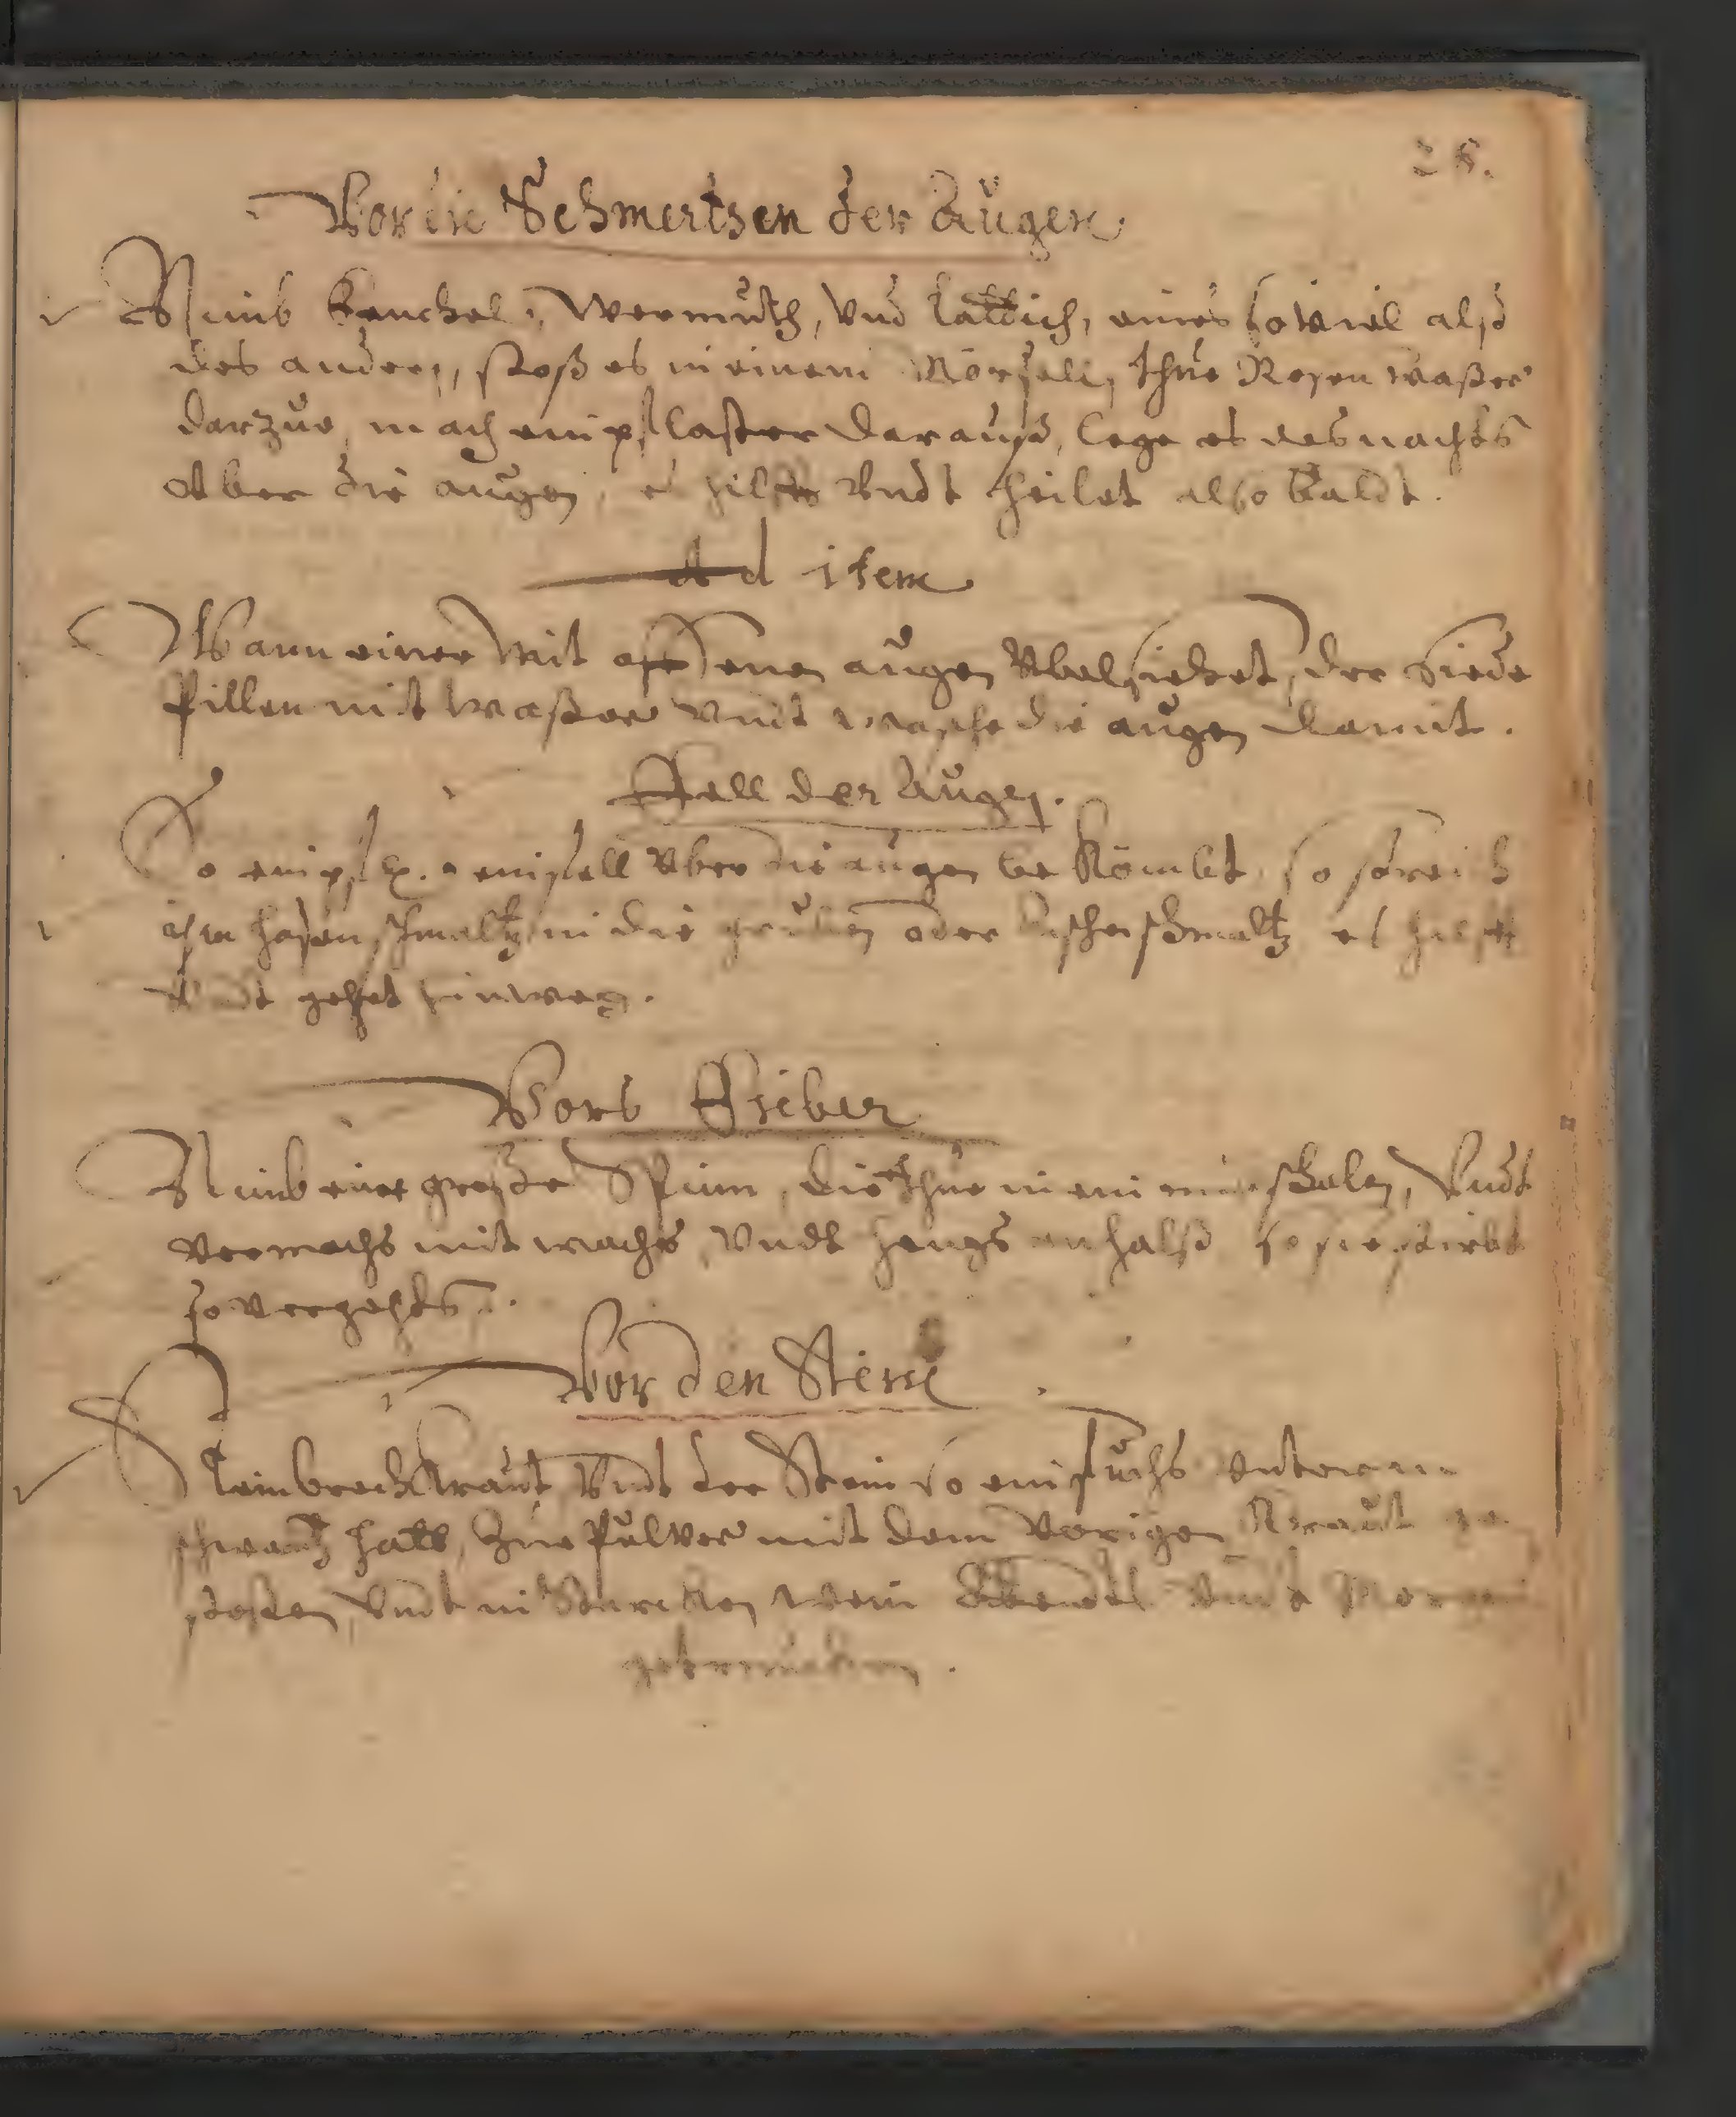 28.
Vor die Schmertsen der Augen
Nimb Fenchel, Wermuth, Vnd Lattich, eines soviel alß
des andern, stoß es in einem Mörsell, thue Rosen waßer
darzue, mach ein pflaster darauß, lege es des nachts
vber die augen, es hilfft Vndt heilet also baldt.
Ad item
Wann einer mit offenen augen Vbel siehet, der siede
Pillen mit waßer Vndt wasche die augen damit.
Fell der Augen.
So ein pf. ein fell Vber die augen bekömbt, so streich
ihm hasen schmaltz in die gruben oder Aschenschmaltz es hilfft
Vndt gehet hinweg.
Vors Fieber
Nimb eine große Spinn, die thue in ein schalen, Vndt
vermachs mit wachs, Vndt hengs an halß so sie stirbt
so vergehts.
Vor den Stein
Steinbrech Kraut, Vndt der Stein so ein fuchs Vnterm
schwantz hatt, Zue Pulver mit dem Vorigen Kraut ge
stoßen, Vndt in starcken wein Abendts Vndt Morgen
getruncken.